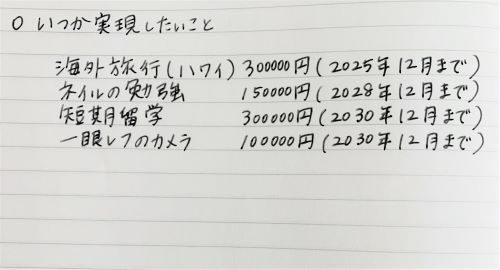 ○ いつか実現したいこと
海外旅行(ハワイ) 300000円(2025年12月まで)
ネイルの勉強 150000円(2028年12月まで)
短期留学 300000円(2030年12月まで)
一眼レフのカメラ 100000円(2030年12月まで)